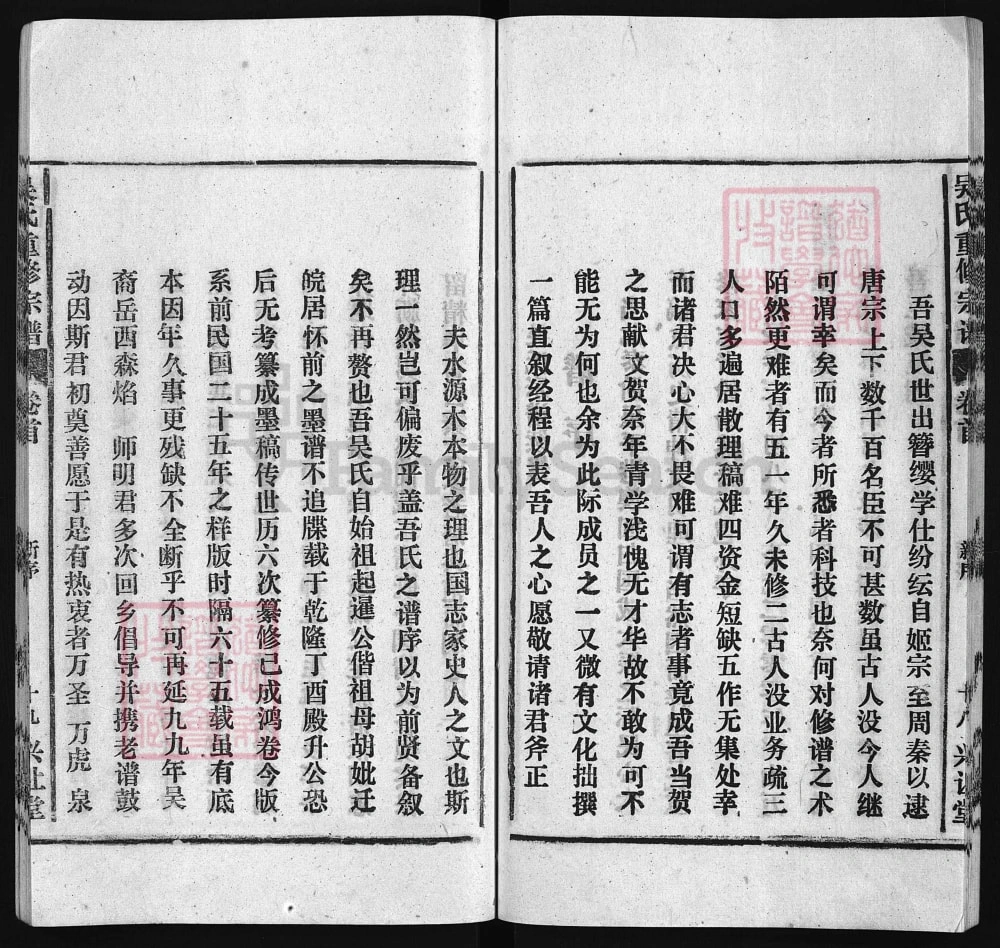 吴氏重修宗谱 卷首 新序 十八 兴让堂
吾吴氏世出簪缨学仕纷纭自姬宗至周秦以逮
唐宗上下数千百名臣不可甚数虽古人没今人继
可谓幸矣而今者所悉者科技也奈何对修谱之术
陌然更难者有五一年久未修二古人没业务疏三
人口多遍居散理稿难四资金短缺五作无集处幸
而诸君决心大不畏难可谓有志者事竟成吾当贺
之思献文贺奈年青学浅愧无才华故不敢为可不
能无为何也余为此际成员之一又微有文化拙撰
一篇直叙经程以表吾人之心愿敬请诸君斧正
夫水源木本物之理也国志家史人之文也斯
理一然岂可偏废乎盖吾氏之谱序以为前贤备叙
矣不再赘也吾吴氏自始祖起暹公偕祖母胡妣迁
皖居怀前之墨谱不追牒载于乾隆丁酉殿升公恐
后无考纂成墨稿传世历六次纂修已成鸿卷今版
系前民国二十五年之样版时隔六十五载虽有底
本因年久事更残缺不全断乎不可再延九九年吴
裔岳西森焰 师明君多次回乡倡导并携老谱鼓
动因斯君初奠善愿于是有热衷者万圣 万虎 泉
吴氏重修宗谱 卷首 新序 十九 兴让堂
FamilySearch